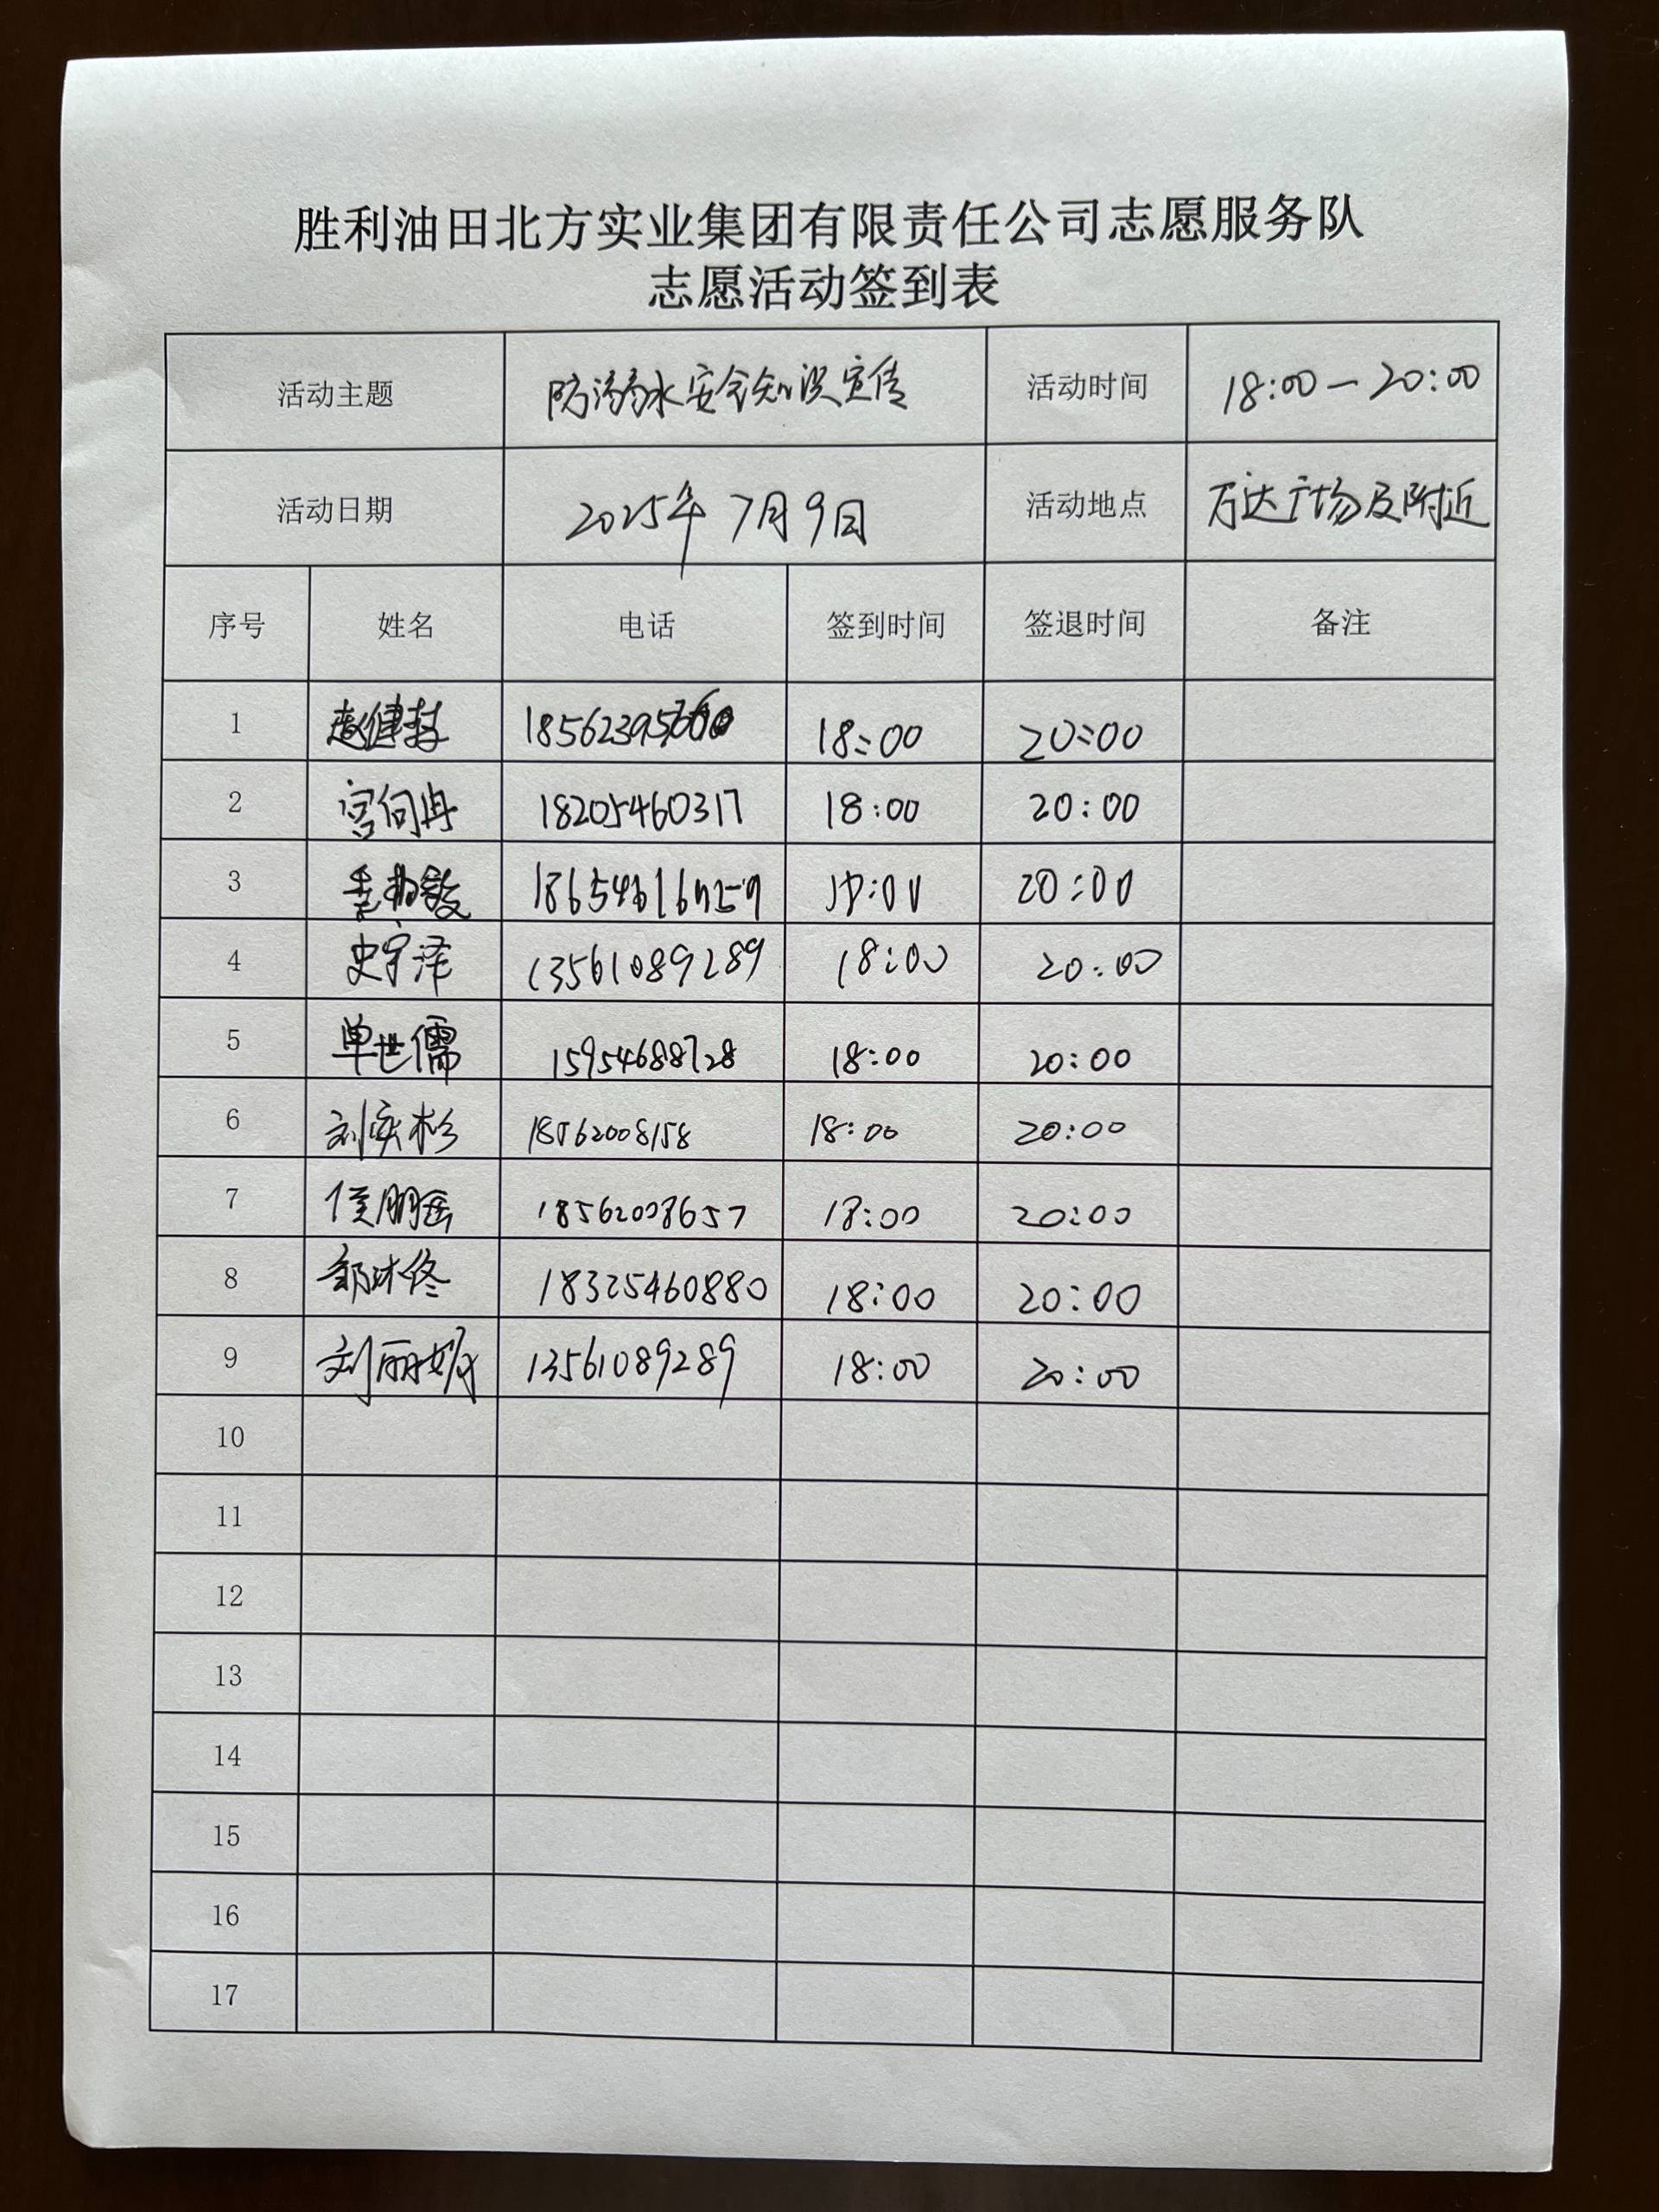 胜利油田北方实业集团有限责任公司志愿服务队
志愿活动签到表
活动主题 防溺水安全知识宣传 活动时间 18:00-20:00
活动日期 2025年7月9日 活动地点 万达广场及附近
序号 姓名 电话 签到时间 签退时间 备注
1 18:00 20:00
2 宫向冉 18205460317 18:00 20:00
3 20:00
4 史宇泽 13561089289 18:00 20:00
5 单世儒 15954688728 18:00 20:00
6 18562008158 18:00 20:00
7 18562008657 18:00 20:00
8 18325460880 18:00 20:00
9 刘丽媛 13561089289 18:00 20:00
10
11
12
13
14
15
16
17